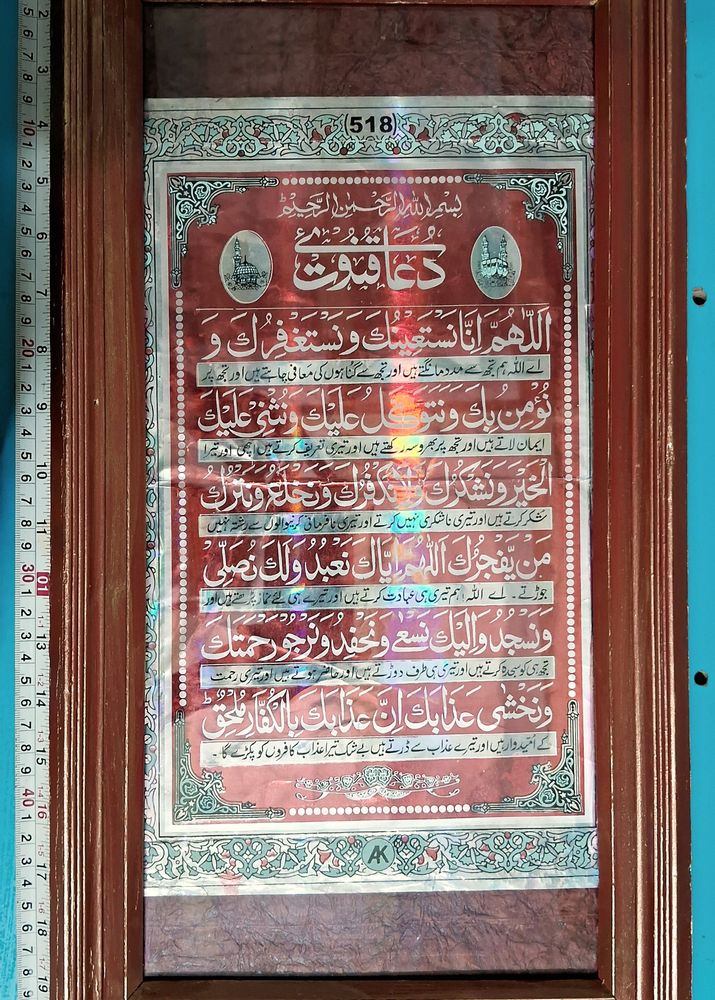 (518)
بسم الله الرحمن الرحيم
دُعائے قنوت
اَللّٰهُمَّ اِنَّا نَسْتَعِيْنُكَ وَنَسْتَغْفِرُكَ وَ
اے اللہ ہم تجھ سے مدد مانگتے ہیں اور تجھ سے گناہوں کی معافی چاہتے ہیں اور تجھ پر
نُؤْمِنُ بِكَ وَنَتَوَكَّلُ عَلَيْكَ وَنُثْنِيْ عَلَيْكَ
ایمان لاتے ہیں اور تجھ پر بھروسہ رکھتے ہیں اور تیری تعریف کرتے ہیں اچھی اور تیرا
الْخَيْرَ وَنَشْكُرُكَ وَلَا نَكْفُرُكَ وَنَخْلَعُ وَنَتْرُكُ
شکر کرتے ہیں اور تیری ناشکری نہیں کرتے اور تیری نافرمانی کرنیوالوں سے رشتہ نہیں
مَنْ يَّفْجُرُكَ اَللّٰهُمَّ اِيَّاكَ نَعْبُدُ وَلَكَ نُصَلِّيْ
جوڑتے۔ اے اللہ ہم تیری ہی عبادت کرتے ہیں اور تیرے ہی لئے نماز پڑھتے ہیں اور
وَنَسْجُدُ وَاِلَيْكَ نَسْعٰى وَنَحْفِدُ وَنَرْجُوْ رَحْمَتَكَ
تجھ ہی کو سجدہ کرتے ہیں اور تیری ہی طرف دوڑتے ہیں اور حاضر ہوتے ہیں اور تیری رحمت
وَنَخْشٰى عَذَابَكَ اِنَّ عَذَابَكَ بِالْكُفَّارِ مُلْحِقٌ
کے اُمیدوار ہیں اور تیرے عذاب سے ڈرتے ہیں بے شک تیرا عذاب کافروں کو پکڑے گا۔
AK